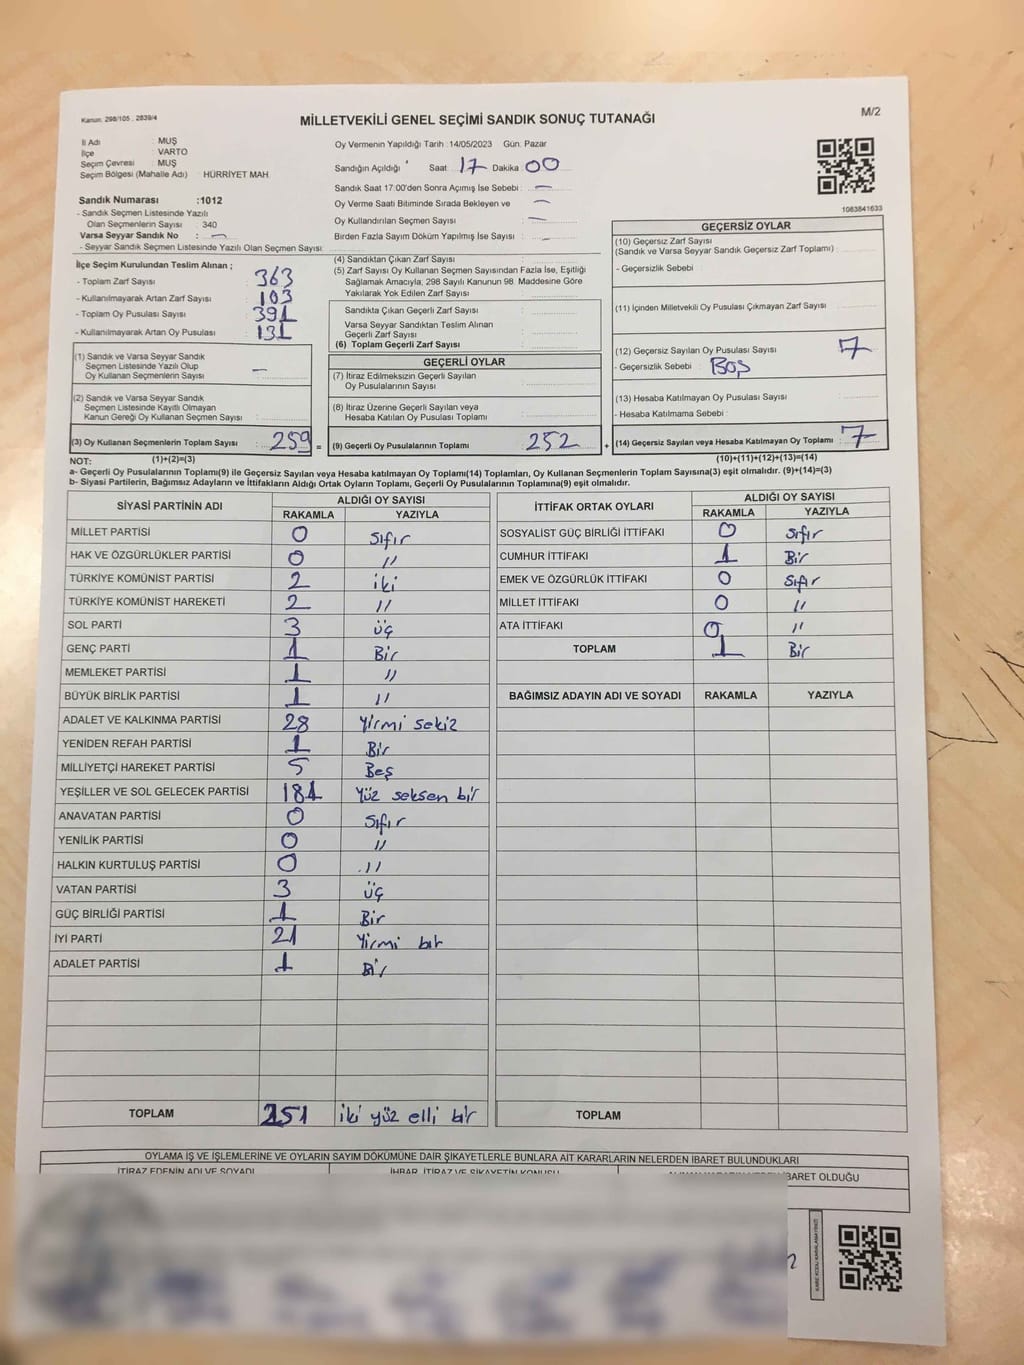 Kanun: 298/105 , 2839/4
MİLLETVEKİLİ GENEL SEÇİMİ SANDIK SONUÇ TUTANAĞI
M/2
İl Adı : MUŞ
İlçe : VARTO
Seçim Çevresi : MUŞ
Seçim Bölgesi (Mahalle Adı) : HÜRRİYET MAH.
Sandık Numarası :1012
- Sandık Seçmen Listesinde Yazılı
Olan Seçmenlerin Sayısı : 340
Varsa Seyyar Sandık No : —
- Seyyar Sandık Seçmen Listesinde Yazılı Olan Seçmen Sayısı:
Oy Vermenin Yapıldığı Tarih : 14/05/2023 Gün: Pazar
Sandığın Açıldığı Saat : 17 Dakika : 00
Sandık Saat 17:00'den Sonra Açımış İse Sebebi : —
Oy Verme Saati Bitiminde Sırada Bekleyen ve —
Oy Kullandırılan Seçmen Sayısı : —
Birden Fazla Sayım Döküm Yapılmış İse Sayısı : —
1083841633
İlçe Seçim Kurulundan Teslim Alınan ;
- Toplam Zarf Sayısı : 363
- Kullanılmayarak Artan Zarf Sayısı : 103
- Toplam Oy Pusulası Sayısı : 391
- Kullanılmayarak Artan Oy Pusulası : 131
(1) Sandık ve Varsa Seyyar Sandık
Seçmen Listesinde Yazılı Olup
Oy Kullanan Seçmenlerin Sayısı : —
(2) Sandık ve Varsa Seyyar Sandık
Seçmen Listesinde Kayıtlı Olmayan
Kanun Gereği Oy Kullanan Seçmen Sayısı :
(3) Oy Kullanan Seçmenlerin Toplam Sayısı : 259 =
(1)+(2)=(3)
(4) Sandıktan Çıkan Zarf Sayısı :
(5) Zarf Sayısı Oy Kullanan Seçmen Sayısından Fazla İse, Eşitliği
Sağlamak Amacıyla, 298 Sayılı Kanunun 98. Maddesine Göre
Yakılarak Yok Edilen Zarf Sayısı :
Sandıkta Çıkan Geçerli Zarf Sayısı :
Varsa Seyyar Sandıktan Teslim Alınan
Geçerli Zarf Sayısı :
(6) Toplam Geçerli Zarf Sayısı :
GEÇERLİ OYLAR
(7) İtiraz Edilmeksizin Geçerli Sayılan
Oy Pusulalarının Sayısı :
(8) İtiraz Üzerine Geçerli Sayılan veya
Hesaba Katılan Oy Pusulası Toplamı :
(9) Geçerli Oy Pusulalarının Toplamı : 252 +
GEÇERSİZ OYLAR
(10) Geçersiz Zarf Sayısı
(Sandık ve Varsa Seyyar Sandık Geçersiz Zarf Toplamı) :
- Geçersizlik Sebebi :
(11) İçinden Milletvekili Oy Pusulası Çıkmayan Zarf Sayısı :
(12) Geçersiz Sayılan Oy Pusulası Sayısı : 7
- Geçersizlik Sebebi : Boş
(13) Hesaba Katılmayan Oy Pusulası Sayısı :
- Hesaba Katılmama Sebebi :
(14) Geçersiz Sayılan veya Hesaba Katılmayan Oy Toplamı : 7
(10)+(11)+(12)+(13)=(14)
NOT:
a- Geçerli Oy Pusulalarının Toplamı(9) ile Geçersiz Sayılan veya Hesaba katılmayan Oy Toplamı(14) Toplamları, Oy Kullanan Seçmenlerin Toplam Sayısına(3) eşit olmalıdır. (9)+(14)=(3)
b- Siyasi Partilerin, Bağımsız Adayların ve İttifakların Aldığı Ortak Oyların Toplamı, Geçerli Oy Pusulalarının Toplamına(9) eşit olmalıdır.
SİYASİ PARTİNİN ADI ALDIĞI OY SAYISI
RAKAMLA YAZIYLA
MİLLET PARTİSİ 0 Sıfır
HAK VE ÖZGÜRLÜKLER PARTİSİ 0 //
TÜRKİYE KOMÜNİST PARTİSİ 2 iki
TÜRKİYE KOMÜNİST HAREKETİ 2 //
SOL PARTİ 3 üç
GENÇ PARTİ 1 Bir
MEMLEKET PARTİSİ 1 //
BÜYÜK BİRLİK PARTİSİ 1 //
ADALET VE KALKINMA PARTİSİ 28 Yirmi sekiz
YENİDEN REFAH PARTİSİ 1 Bir
MİLLİYETÇİ HAREKET PARTİSİ 5 Beş
YEŞİLLER VE SOL GELECEK PARTİSİ 181 Yüz seksen bir
ANAVATAN PARTİSİ 0 Sıfır
YENİLİK PARTİSİ 0 //
HALKIN KURTULUŞ PARTİSİ 0 //
VATAN PARTİSİ 3 üç
GÜÇ BİRLİĞİ PARTİSİ 1 Bir
İYİ PARTİ 21 Yirmi bir
ADALET PARTİSİ 1 Bir
TOPLAM 251 iki yüz elli bir
İTTİFAK ORTAK OYLARI ALDIĞI OY SAYISI
RAKAMLA YAZIYLA
SOSYALİST GÜÇ BİRLİĞİ İTTİFAKI 0 Sıfır
CUMHUR İTTİFAKI 1 Bir
EMEK VE ÖZGÜRLÜK İTTİFAKI 0 Sıfır
MİLLET İTTİFAKI 0 //
ATA İTTİFAKI 0 //
TOPLAM 1 Bir
BAĞIMSIZ ADAYIN ADI VE SOYADI RAKAMLA YAZIYLA
TOPLAM
OYLAMA İŞ VE İŞLEMLERİNE VE OYLARIN SAYIM DÖKÜMÜNE DAİR ŞİKAYETLERLE BUNLARA AİT KARARLARIN NELERDEN İBARET BULUNDUKLARI
İTİRAZ EDENİN ADI VE SOYADI İHBAR, İTİRAZ VE ŞİKAYETİN KONUSU İBARET OLDUĞU